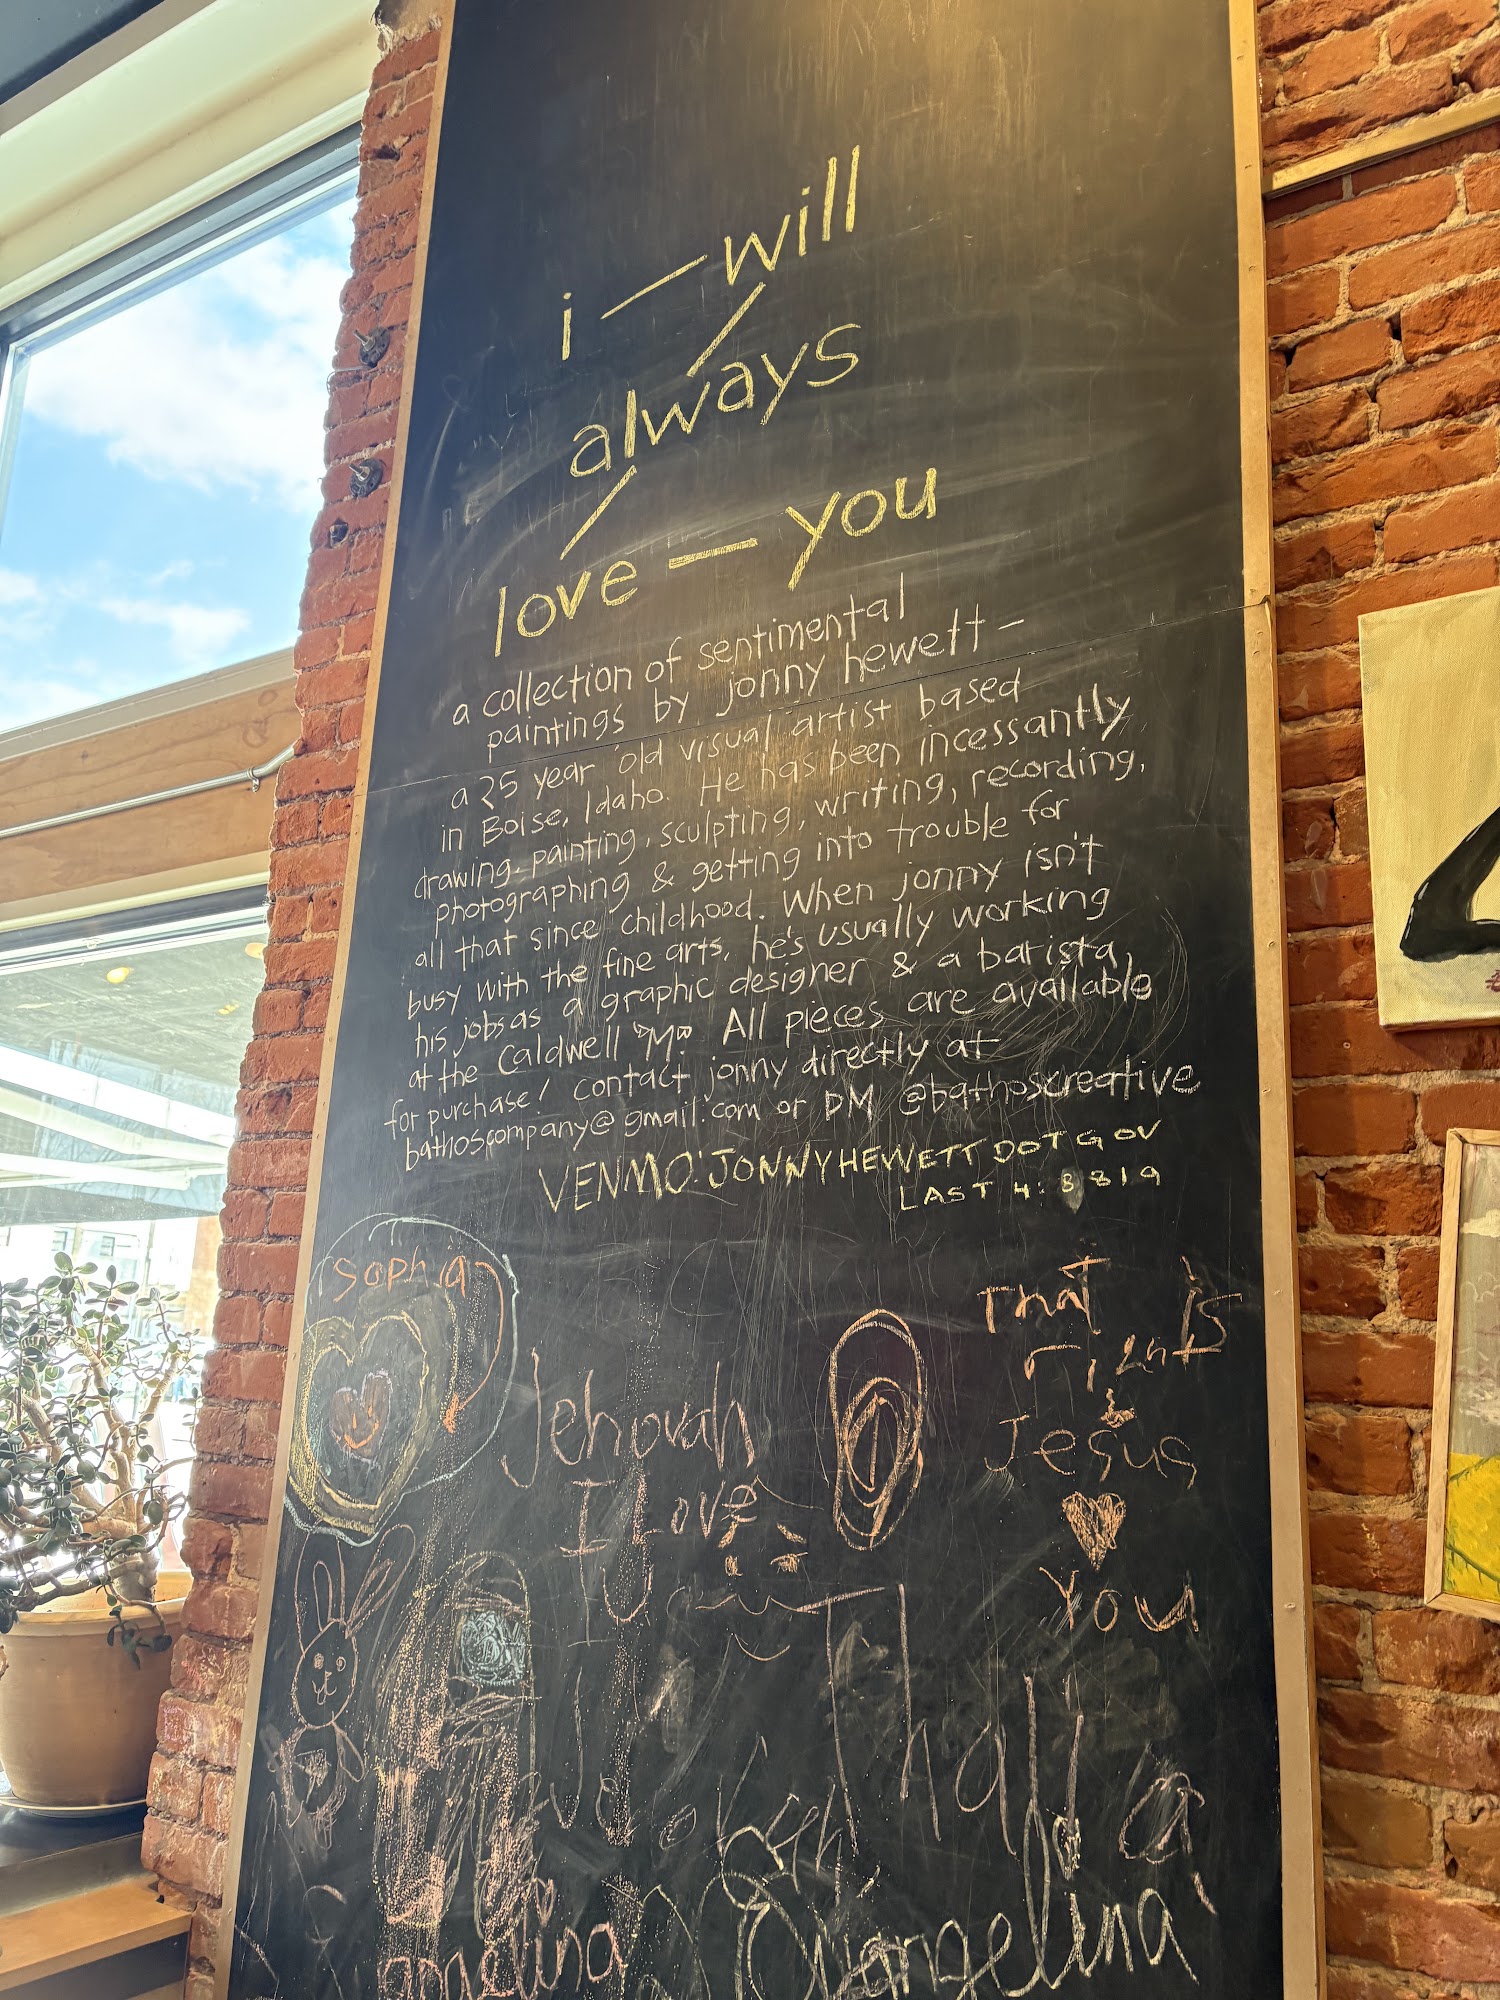 i — will
always
love — you
a collection of sentimental
paintings by jonny hewett —
a 25 year old visual artist based
in Boise, Idaho. He has been incessantly
drawing, painting, sculpting, writing, recording,
photographing & getting into trouble for
all that since childhood. When jonny isn't
busy with the fine arts, he's usually working
his jobs as a graphic designer & a barista,
at the Caldwell "M". All pieces are available
for purchase! Contact jonny directly at
bathoscompany@gmail.com or DM @bathoscreative
VENMO: JONNYHEWETTDOTGOV
LAST 4: 8819
Sophia
That is
right
Jehovah
Jesus
I Love
You
Thalia
angelina
Angelina